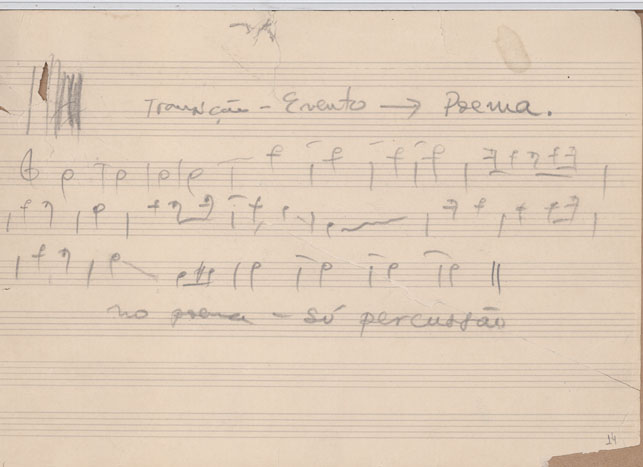 Transição - Evento → Poema.
no poema - só percussão
14